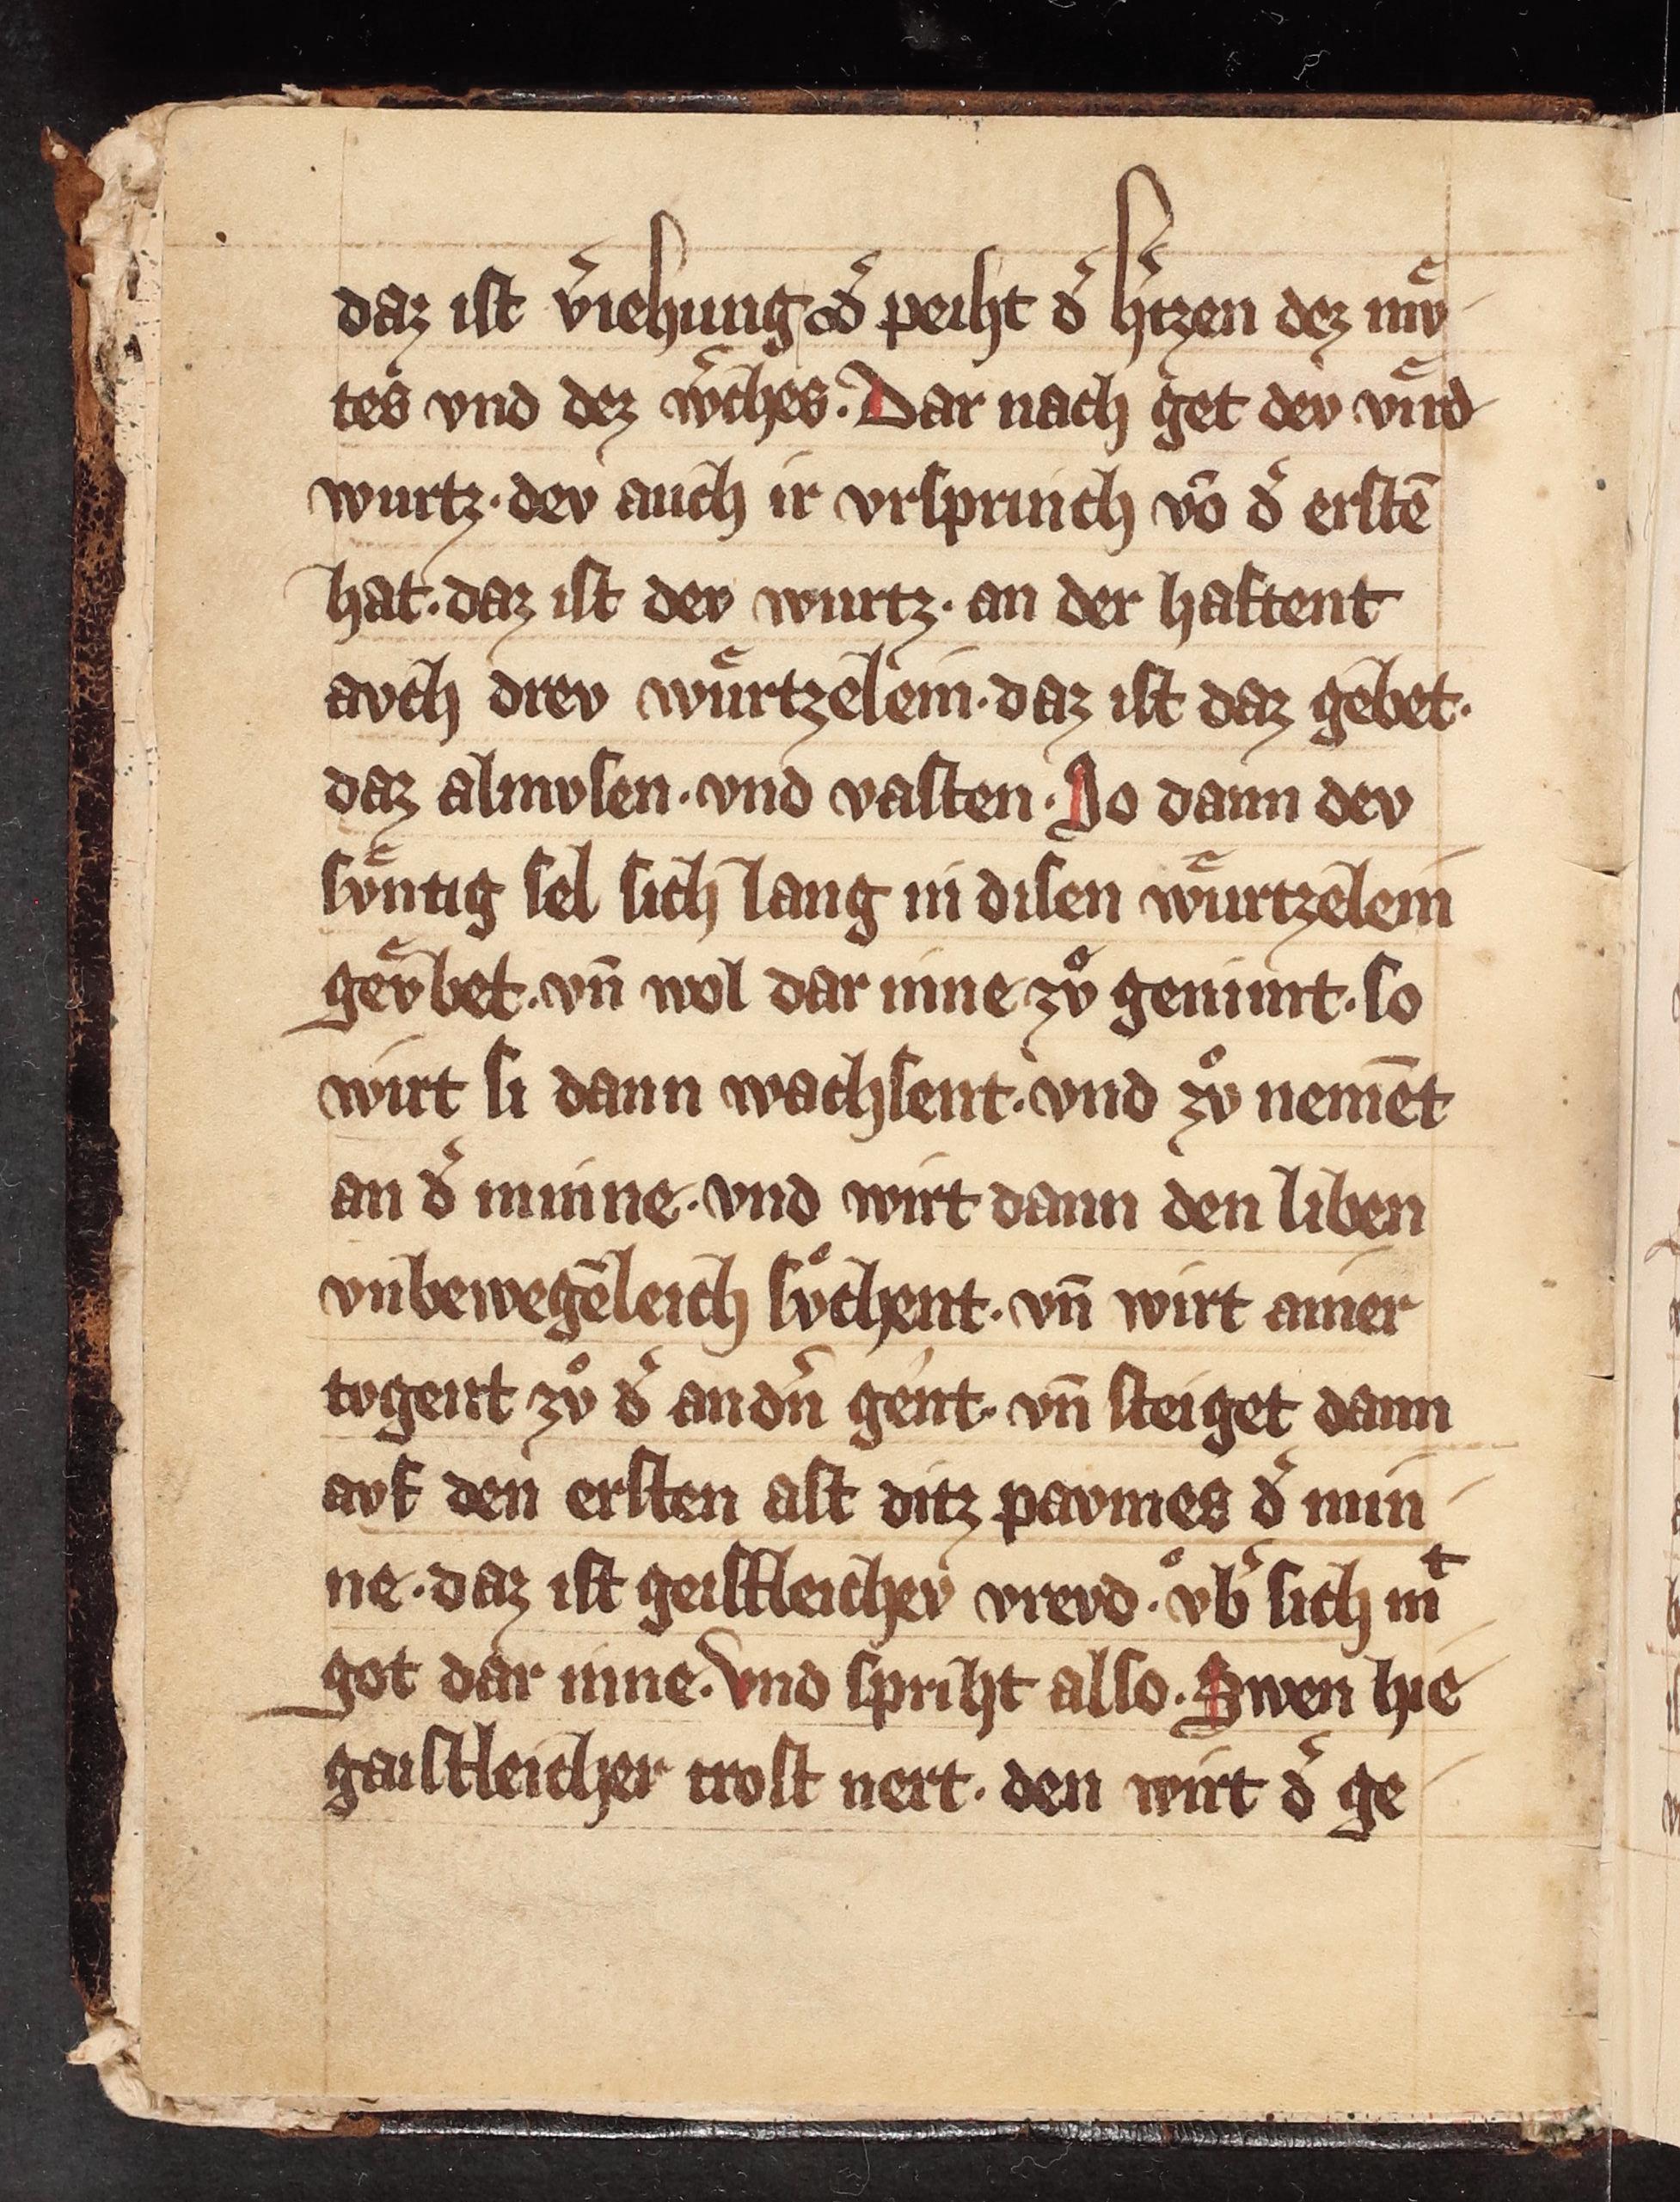 daz ist v̾iehung od̾ peiht d̾ h̾tzen dez mvͤ-
tes vnd dez w̾ches. Dar nach get dev vierd
wurtz. dev auch ir vrsprinch vō d̾ erstē
hat. daz ist dev wurtz. an der haftent
avch drev wuͤrtzelein. daz ist daz gebet.
daz almvsen. vnd vasten. So dann dev
svͤntig sel sich lang in disen wuͤrtzelein
gevͤbet. vn̄ wol dar inne zvͦ genimt. so
wirt si dann wachsent. vnd zvͦ nemēt
an d̾ minne. vnd wirt dann den liben
vnbewegēleich svͦchent. vn̄ wirt ainer
tvgent zvͦ d̾ andn̾ gent. vn̄ steiget dann
avf den ersten ast ditz pavmes d̾ min-
ne. daz ist geistleichev vrevd. vͦb̾ sich mᵗ
got dar inne. Vnd spriht also. Swen hie
gaistleicher trost nert. den wirt d̾ ge-